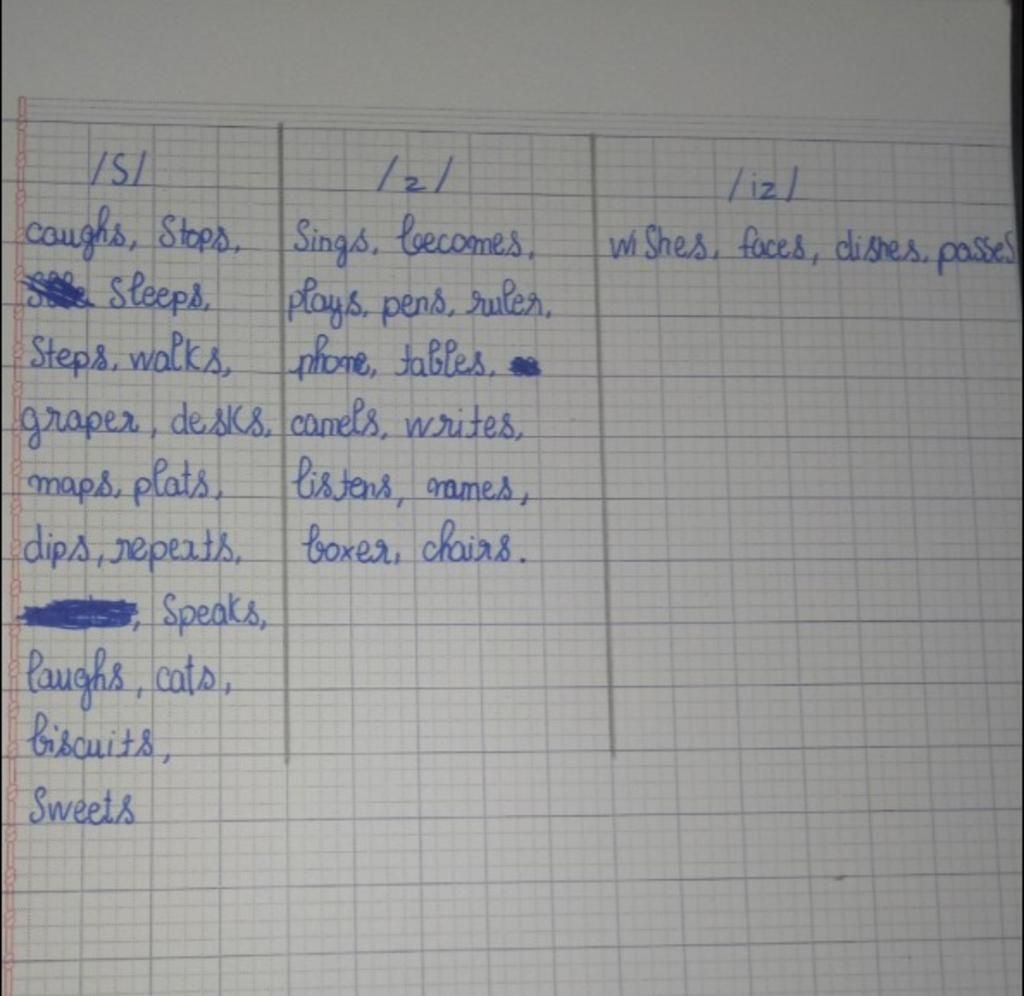 /S/ /z/ /iz/
caughs, Stops, Sings, becomes, wishes, faces, dishes, passes
Sleeps, plays, pens, ruler,
Steps, walks, phone, tables,
graper, desks, camels, writes,
maps, plats, listens, names,
dips, reperts, boxer, chairs.
, Speaks,
laughs, cats,
biscuits,
Sweets